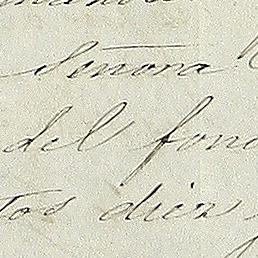 Señora
del fond
tos diez